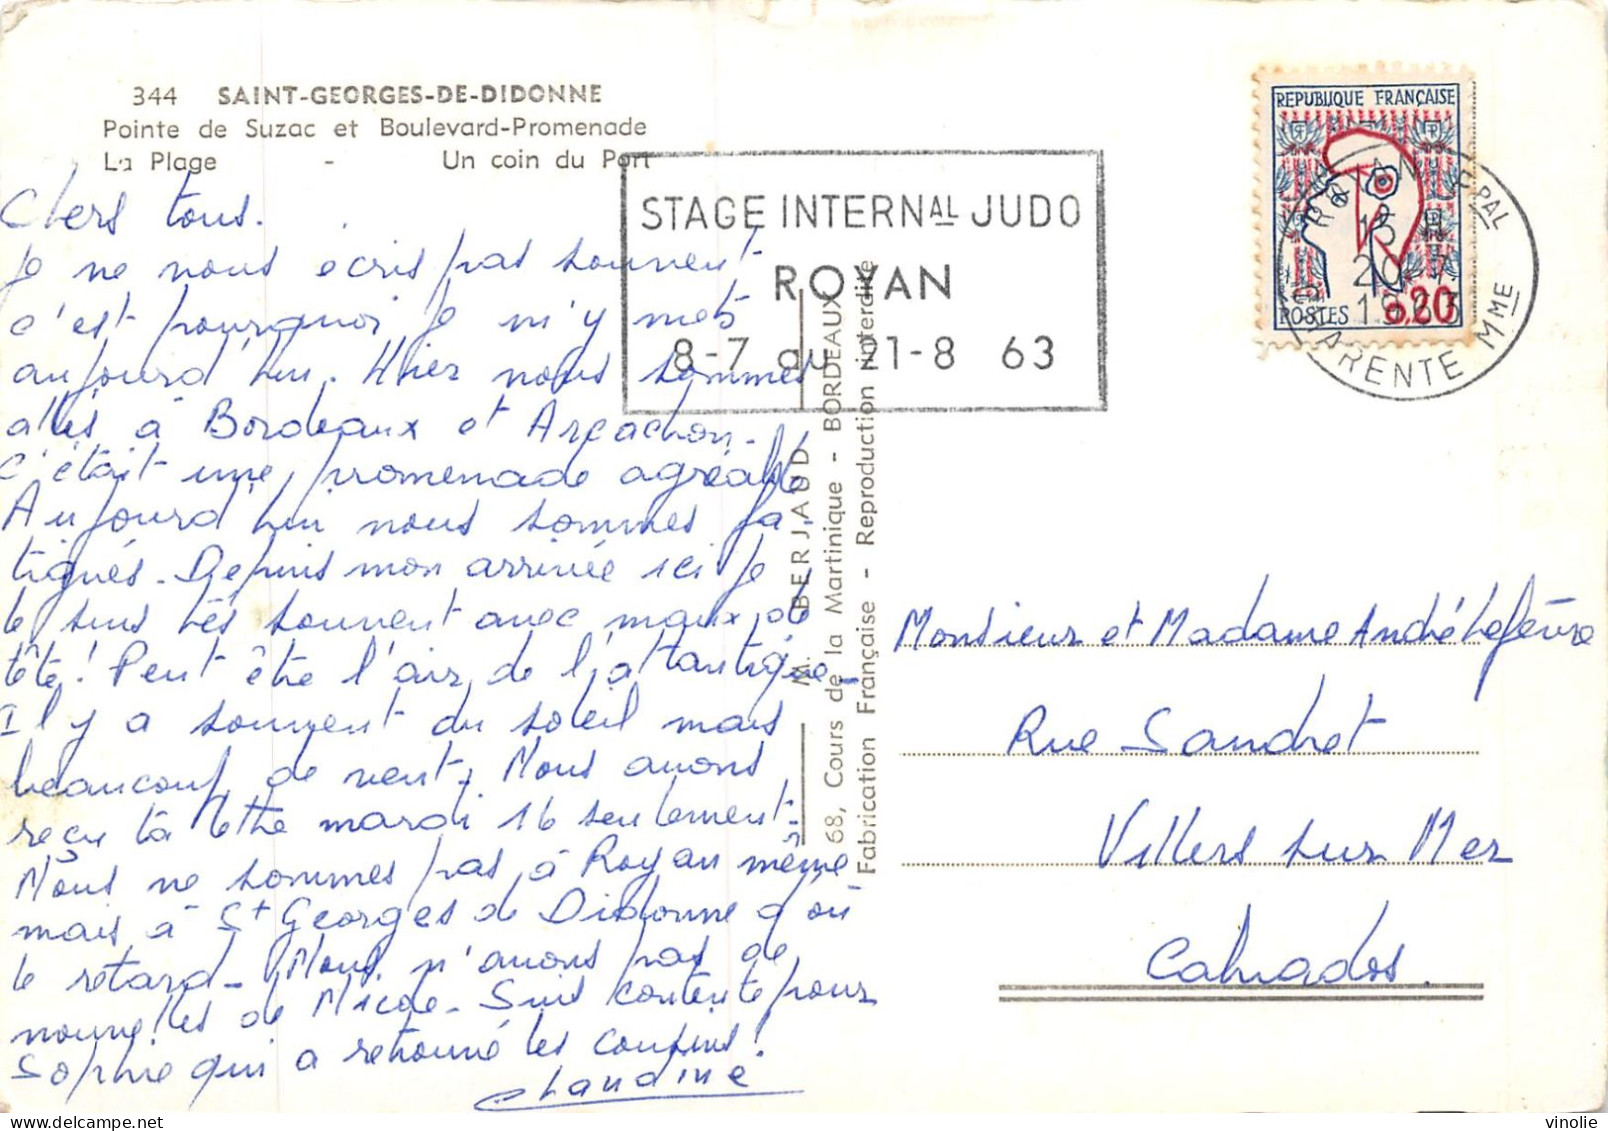 344 SAINT-GEORGES-DE-DIDONNE
Pointe de Suzac et Boulevard-Promenade
La Plage - Un coin du Port
Chers tous.
Je ne vous écris pas souvent
c'est pourquoi je m'y mets
aujourd'hui. Hier nous sommes
allés à Bordeaux et Arcachon.
C'était une promenade agréable
Aujourd'hui nous sommes fa-
tigués. Depuis mon arrivée ici je
le suis très souvent avec maux de
tête! Peut être l'air de l'atlantique.
Il y a souvent du soleil mais
beaucoup de vent. Nous avons
reçu ta lettre mardi 16 seulement.
Nous ne sommes pas à Royan même
mais à St Georges de Didonne d'où
le retard. Nous n'avons pas de
nouvelles de Nicole. Suis contente pour
Sophie qui a retrouvé les cousins!
Claudine
STAGE INTERNAL JUDO
ROYAN
8-7 au 21-8 63
M. BERJAUD
68, Cours de la Martinique - BORDEAUX
Fabrication Française - Reproduction interdite
REPUBLIQUE FRANÇAISE
POSTES 0,20
ROYAN PPAL
15 H
20-7
1963
CHARENTE MME
Monsieur et Madame André Lefèvre
Rue Sandret
Villers sur Mer
Calvados.
vinolie - delcampe.net